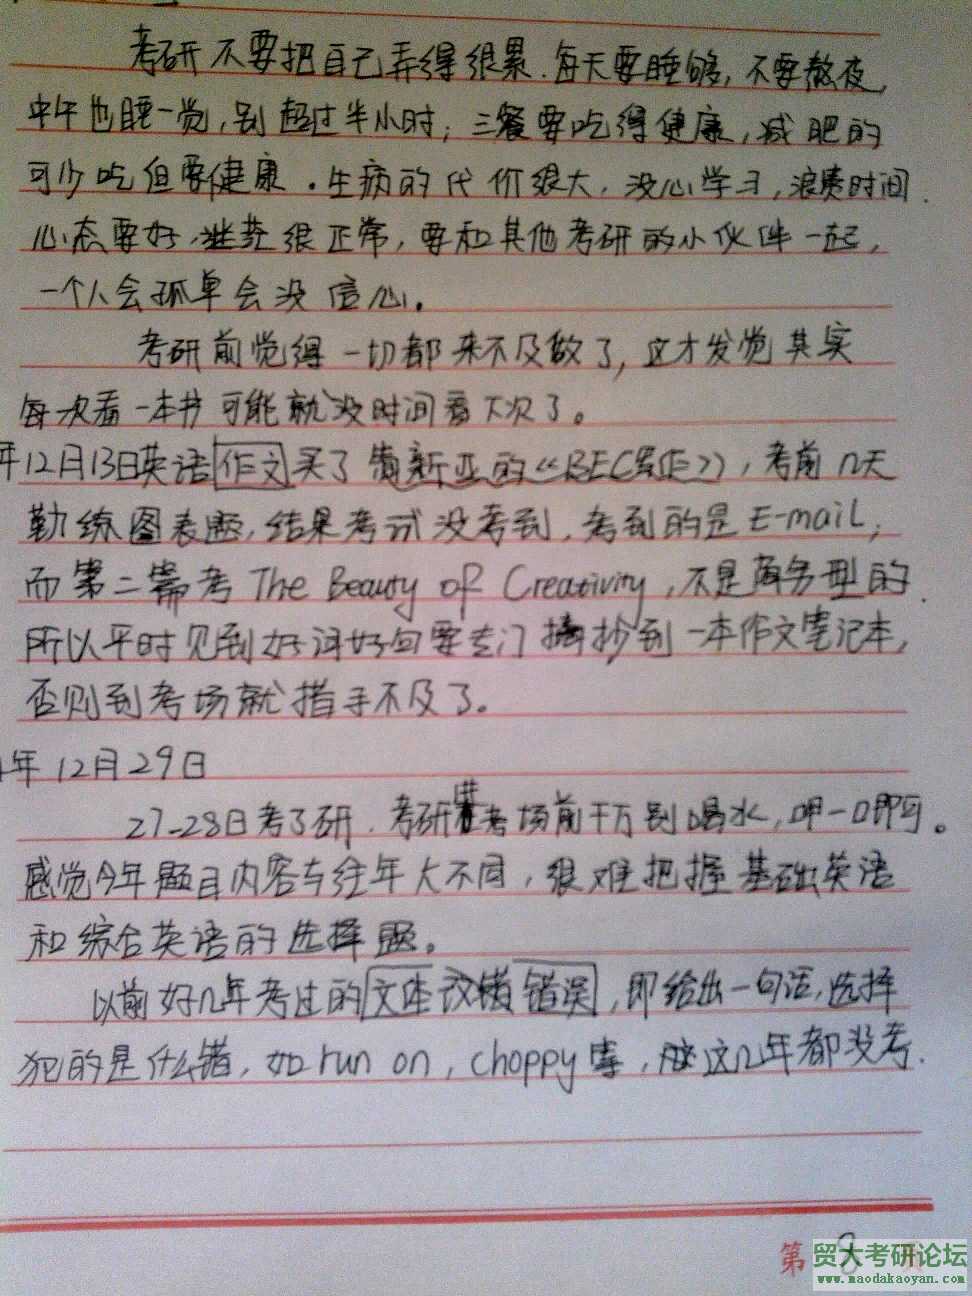 考研不要把自己弄得很累.每天要睡够,不要熬夜,
中午也睡一觉,别超过半小时;三餐要吃得健康,减肥的
可少吃但要健康.生病的代价很大,没心学习,浪费时间.
心态要好,迷茫很正常,要和其他考研的小伙伴一起,
一个人会孤单会没信心。
考研前觉得一切都来不及做了,这才发觉其实
每次看一本书可能就没时间看下次了。
年12月13日英语作文买了 新亚的《BEC写作》,考前几天
勤练图表题,结果考试没考到,考到的是E-mail,
而第二篇考 The Beauty of Creativity,不是商务型的.
所以平时见到好词好句要专门摘抄到一本作文笔记本,
否则到考场就措手不及了。
年12月29日
27-28日考了研.考研进考场前千万别喝水,呷一口即可。
感觉今年题目内容与往年大不同,很难把握基础英语
和综合英语的选择题。
以前好几年考过的文体改错错误,即给出一句话,选择
犯的是什么错,如run on,choppy等,但这几年都没考.
第 8 页
贸大考研论坛
www.maodakaoyan.com